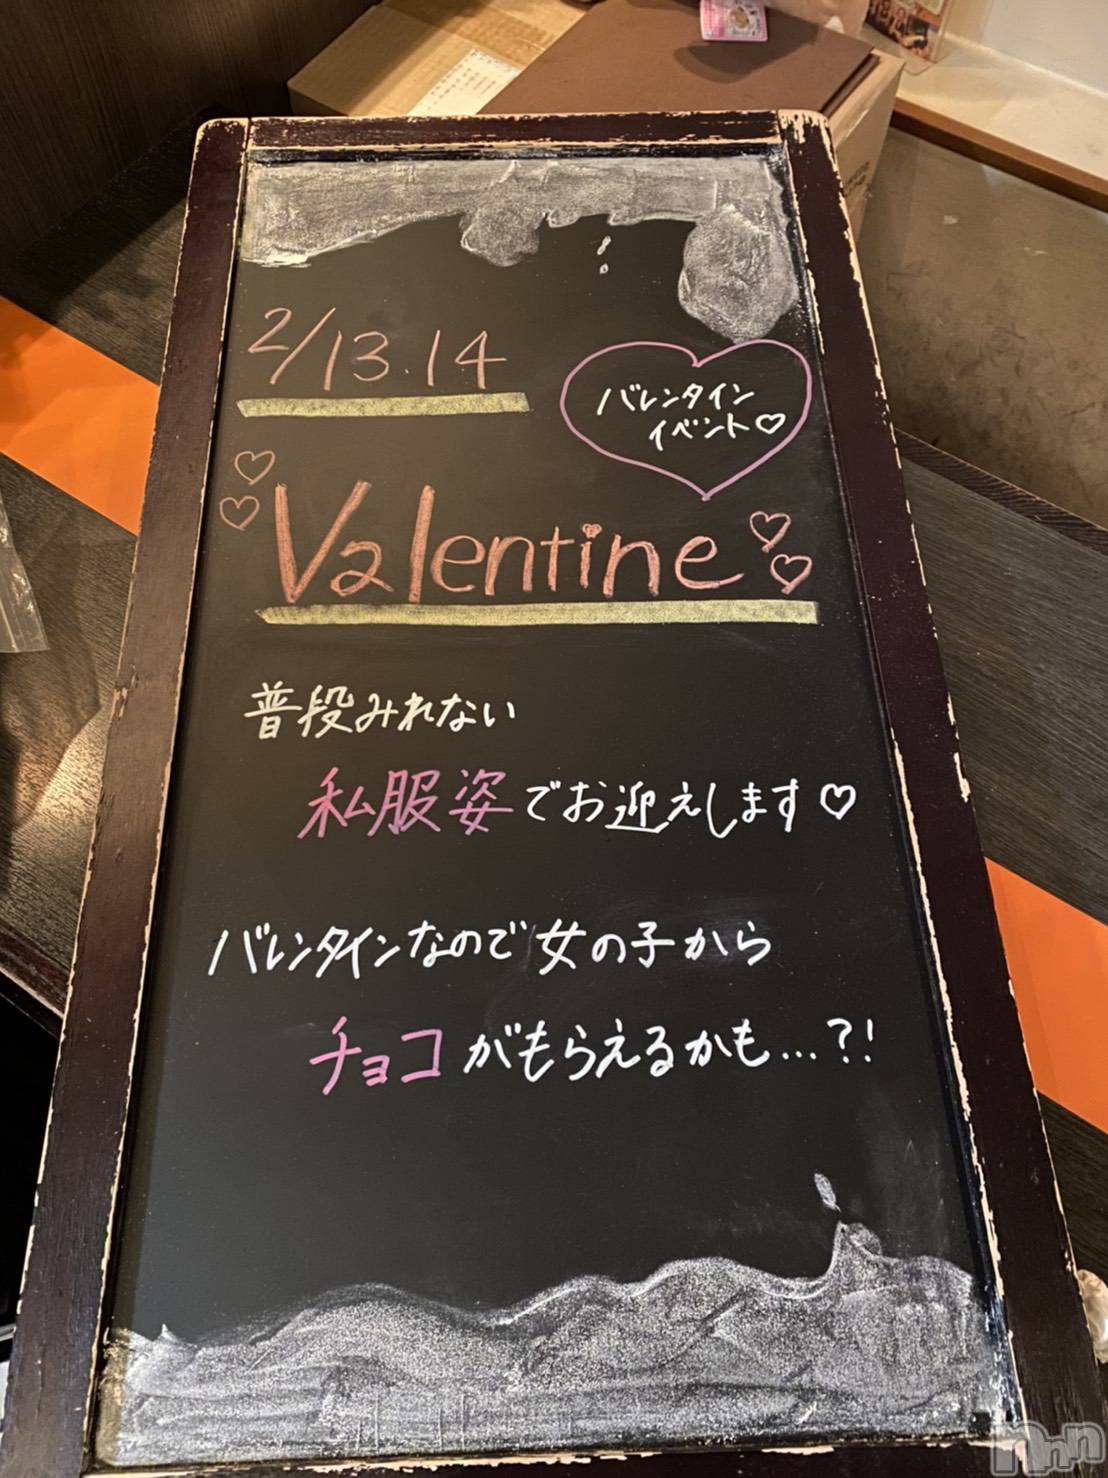 2/13.14
バレンタイン
イベント♡
Valentine
普段みれない
私服姿でお迎えします♡
バレンタインなので女の子から
チョコがもらえるかも...?!